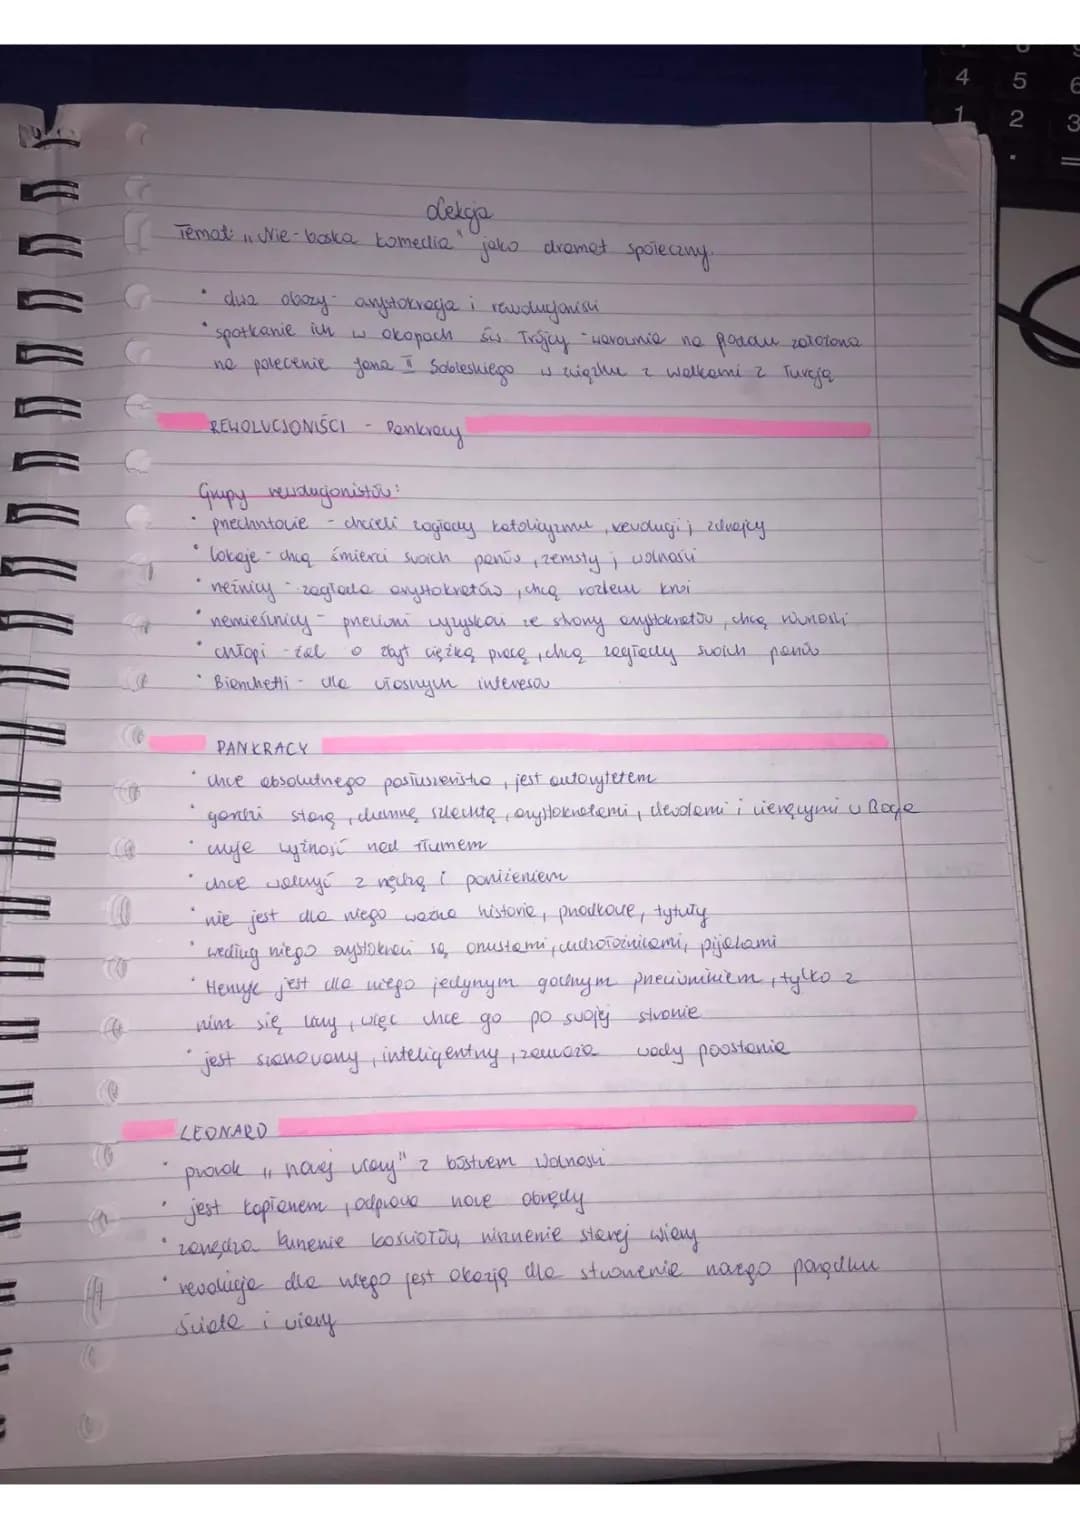 Lekcja
Temat: „Nie-boska komedia" jako dramat społeczny.
• dwa obozy - arystokracja i rewolucjoniści
• spotkanie ich w okopach św. Trójcy - warownia na Podolu założona
na polecenie Jana II Sobieskiego w związku z walkami z Turcją
REWOLUCJONIŚCI - Pankracy
Grupy rewolucjonistów:
• przechrztowie - chcieli zagłady katolicyzmu, rewolucji i zdrajcy
• lokaje - chcą śmierci swoich panów, zemsty i wolności
• rzeźnicy - zagłada arystokratów, chcą rozlewu krwi
• rzemieślnicy - przeciwni wyzyskowi ze strony arystokratów, chcą równości
• chłopi - żal o zbyt ciężką pracę, chcą zagłady swoich panów
• Bianchetti - dla własnych interesów
PANKRACY
• chce absolutnego posłuszeństwa, jest autorytetem
• gardzi starą, dumną szlachtą, arystokratami, i wierzącymi w Boga
• czuje wyższość nad tłumem
• chce walczyć z nędzą i poniżeniem
• nie jest dla niego ważna historia, przodkowie, tytuły
• według niego arystokraci są oszustami, cudzołożnikami, pijakami
• Henryk jest dla niego jedynym godnym przeciwnikiem, tylko z
nim się liczy, więc chce go po swojej stronie
• jest szanowany, inteligentny, zauważa wady powstania
LEONARD
• prorok „nowej wiary" z bóstwem wolności
• jest kapłanem, odprawia nowe obrzędy
• zarządza burzenie kościołów, niszczenie starej wiary
• rewolucja dla niego jest okazją dla stworzenia nowego porządku
świata i wiary
4 5 6
1 2 3
. =